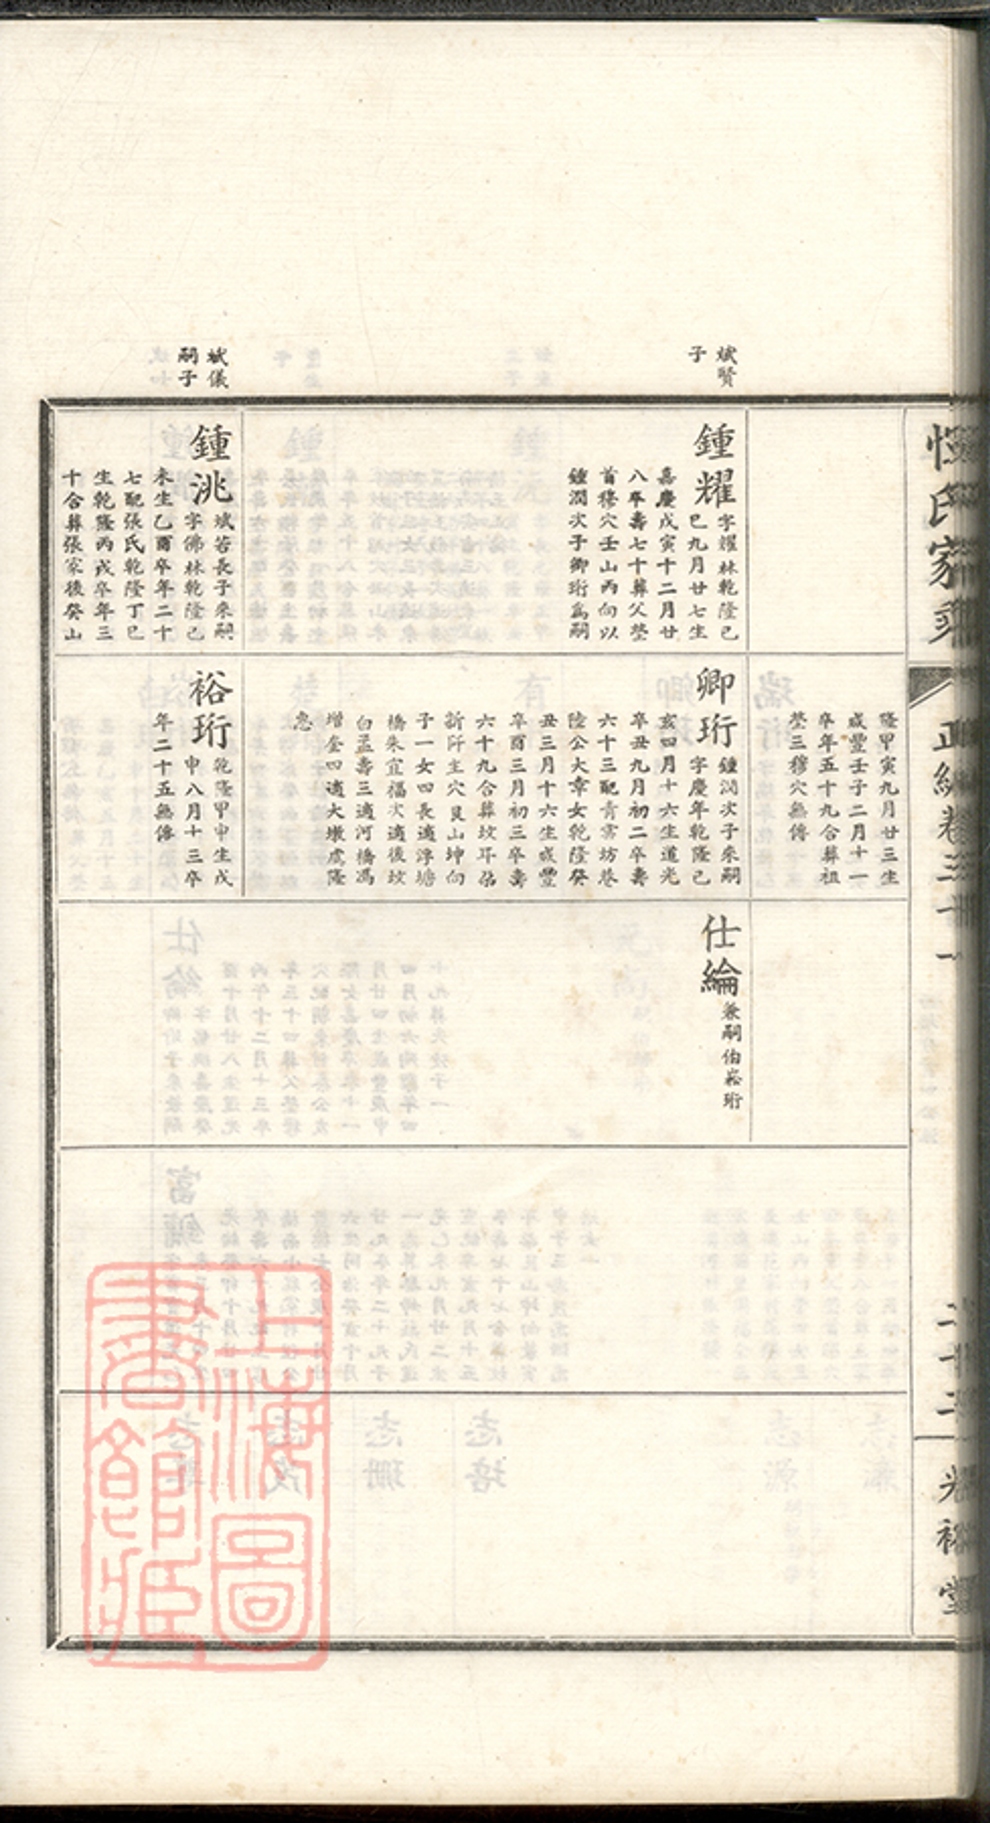 惲氏家乘
正編卷三十一
二十二
光裕堂
斌賢
子
鍾耀
字耀林乾隆己
巳九月廿七生
嘉慶戊寅十二月廿
八卒壽七十葬父塋
首穆穴壬山丙向以
鍾潤次子卿珩爲嗣
斌儀
嗣子
鍾洮
斌若長子來嗣
字佛林乾隆己
未生乙酉卒年二十
七配張氏乾隆丁巳
生乾隆丙戌卒年三
十合葬張家後癸山
隆甲寅九月廿三生
咸豐壬子二月十一
卒年五十九合葬祖
塋三穆穴無傳
卿珩
鍾潤次子來嗣
字慶年乾隆己
亥四月十六生道光
辛丑九月初二卒壽
六十三配青雲坊巷
陸公大章女乾隆癸
丑三月十六生咸豐
辛酉三月初三卒壽
六十九合葬坟耳佔
新阡主穴艮山坤向
子一女四長適浮塘
橋朱宜福次適後坟
白孟壽三適河橋馮
增奎四適大墩虞隆
忠
裕珩
乾隆甲申生戊
申八月十三卒
年二十五無傳
仕綸
兼嗣伯崧珩
上海圖
書館藏